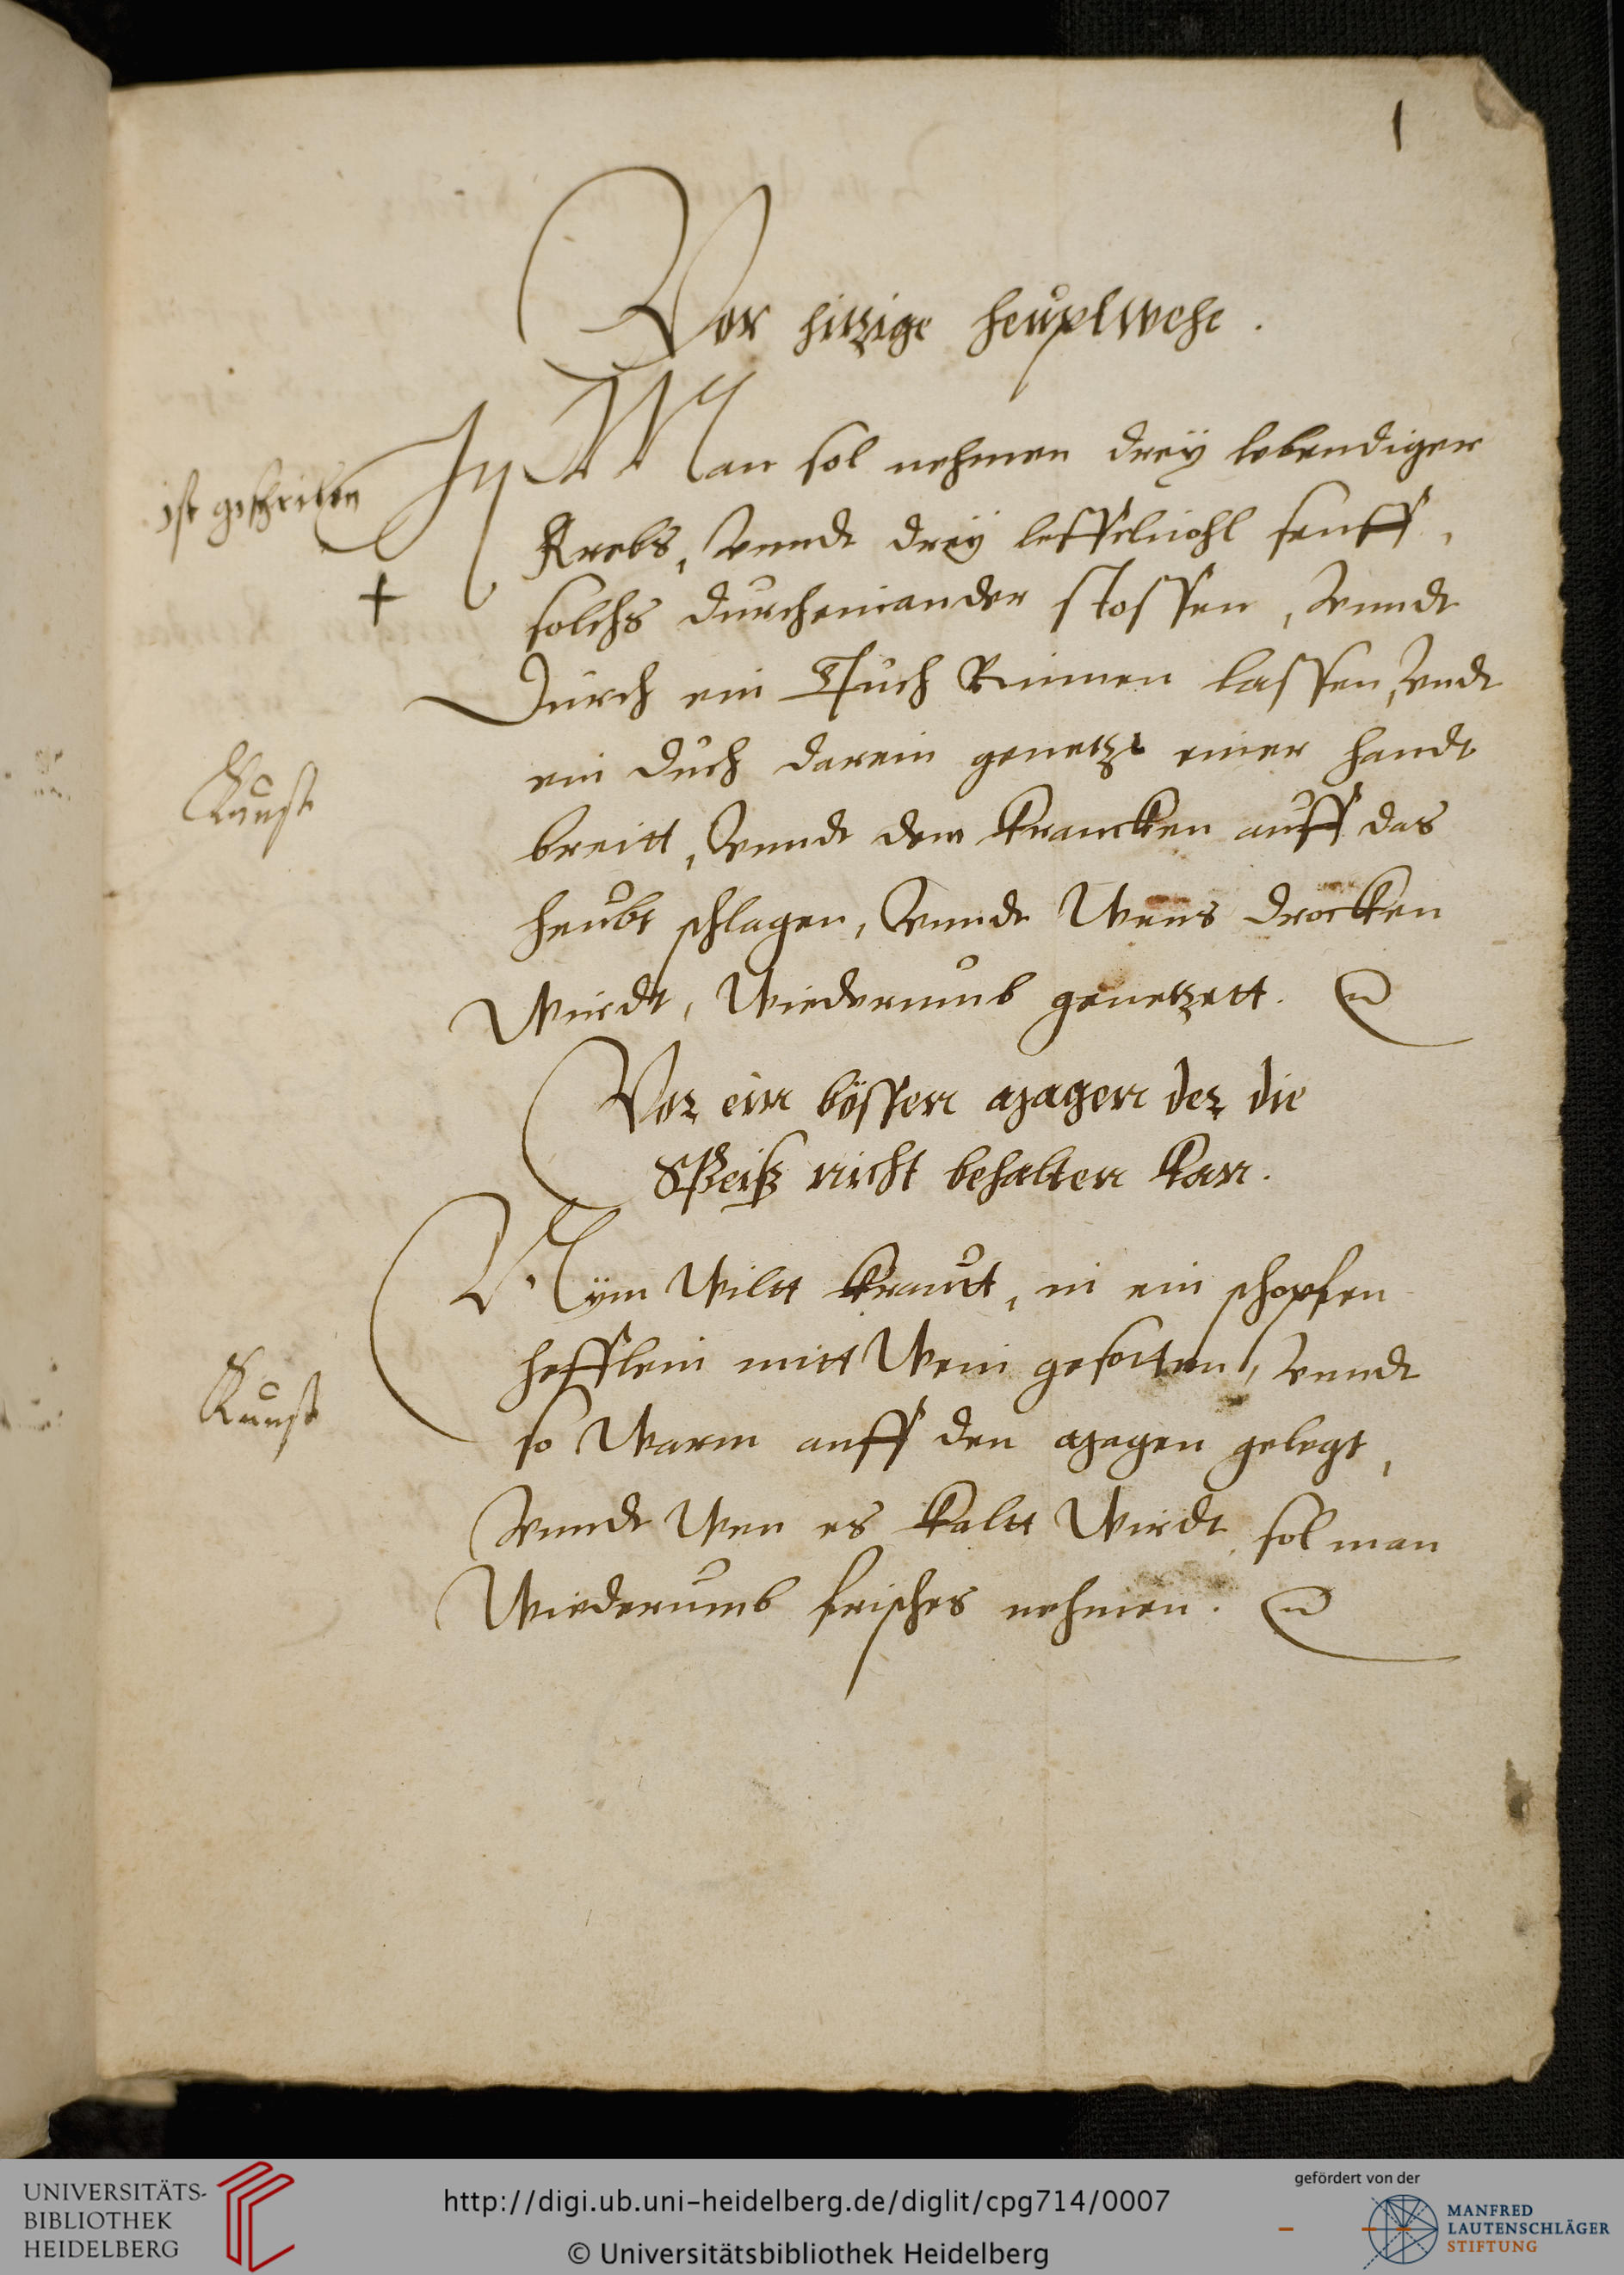 1
Vor hitzige heuptwehe.
Man sol nehmen dreÿ lebendiger
ist geschriben
Krebs, vnndt dreÿ leffeluohl senff,
+
solchs durcheinander stossen, vnndt
Durch ein Tuch Rinnen lassen, vndt
ein duch darein genetzt einer handt
Kunst
breitt, vnndt dem Krancken auff das
heubt schlagen, vnndt Wens drocken
Wirdt, Wiederumb genetzett.
Vor ein bössen magen der die
Speiß nicht behalten kan.
Nÿm Wiltt Krautt, in ein
hefflein mitt Wein gesotten, vnndt
Kunst
so Warm auff den magen gelegt,
vnndt Wen es kaltt Wirdt sol man
Wiederumb frisches nehmen.
UNIVERSITÄTS-
BIBLIOTHEK
HEIDELBERG
http://digi.ub.uni-heidelberg.de/diglit/cpg714/0007
© Universitätsbibliothek Heidelberg
gefördert von der
MANFRED
LAUTENSCHLÄGER
STIFTUNG